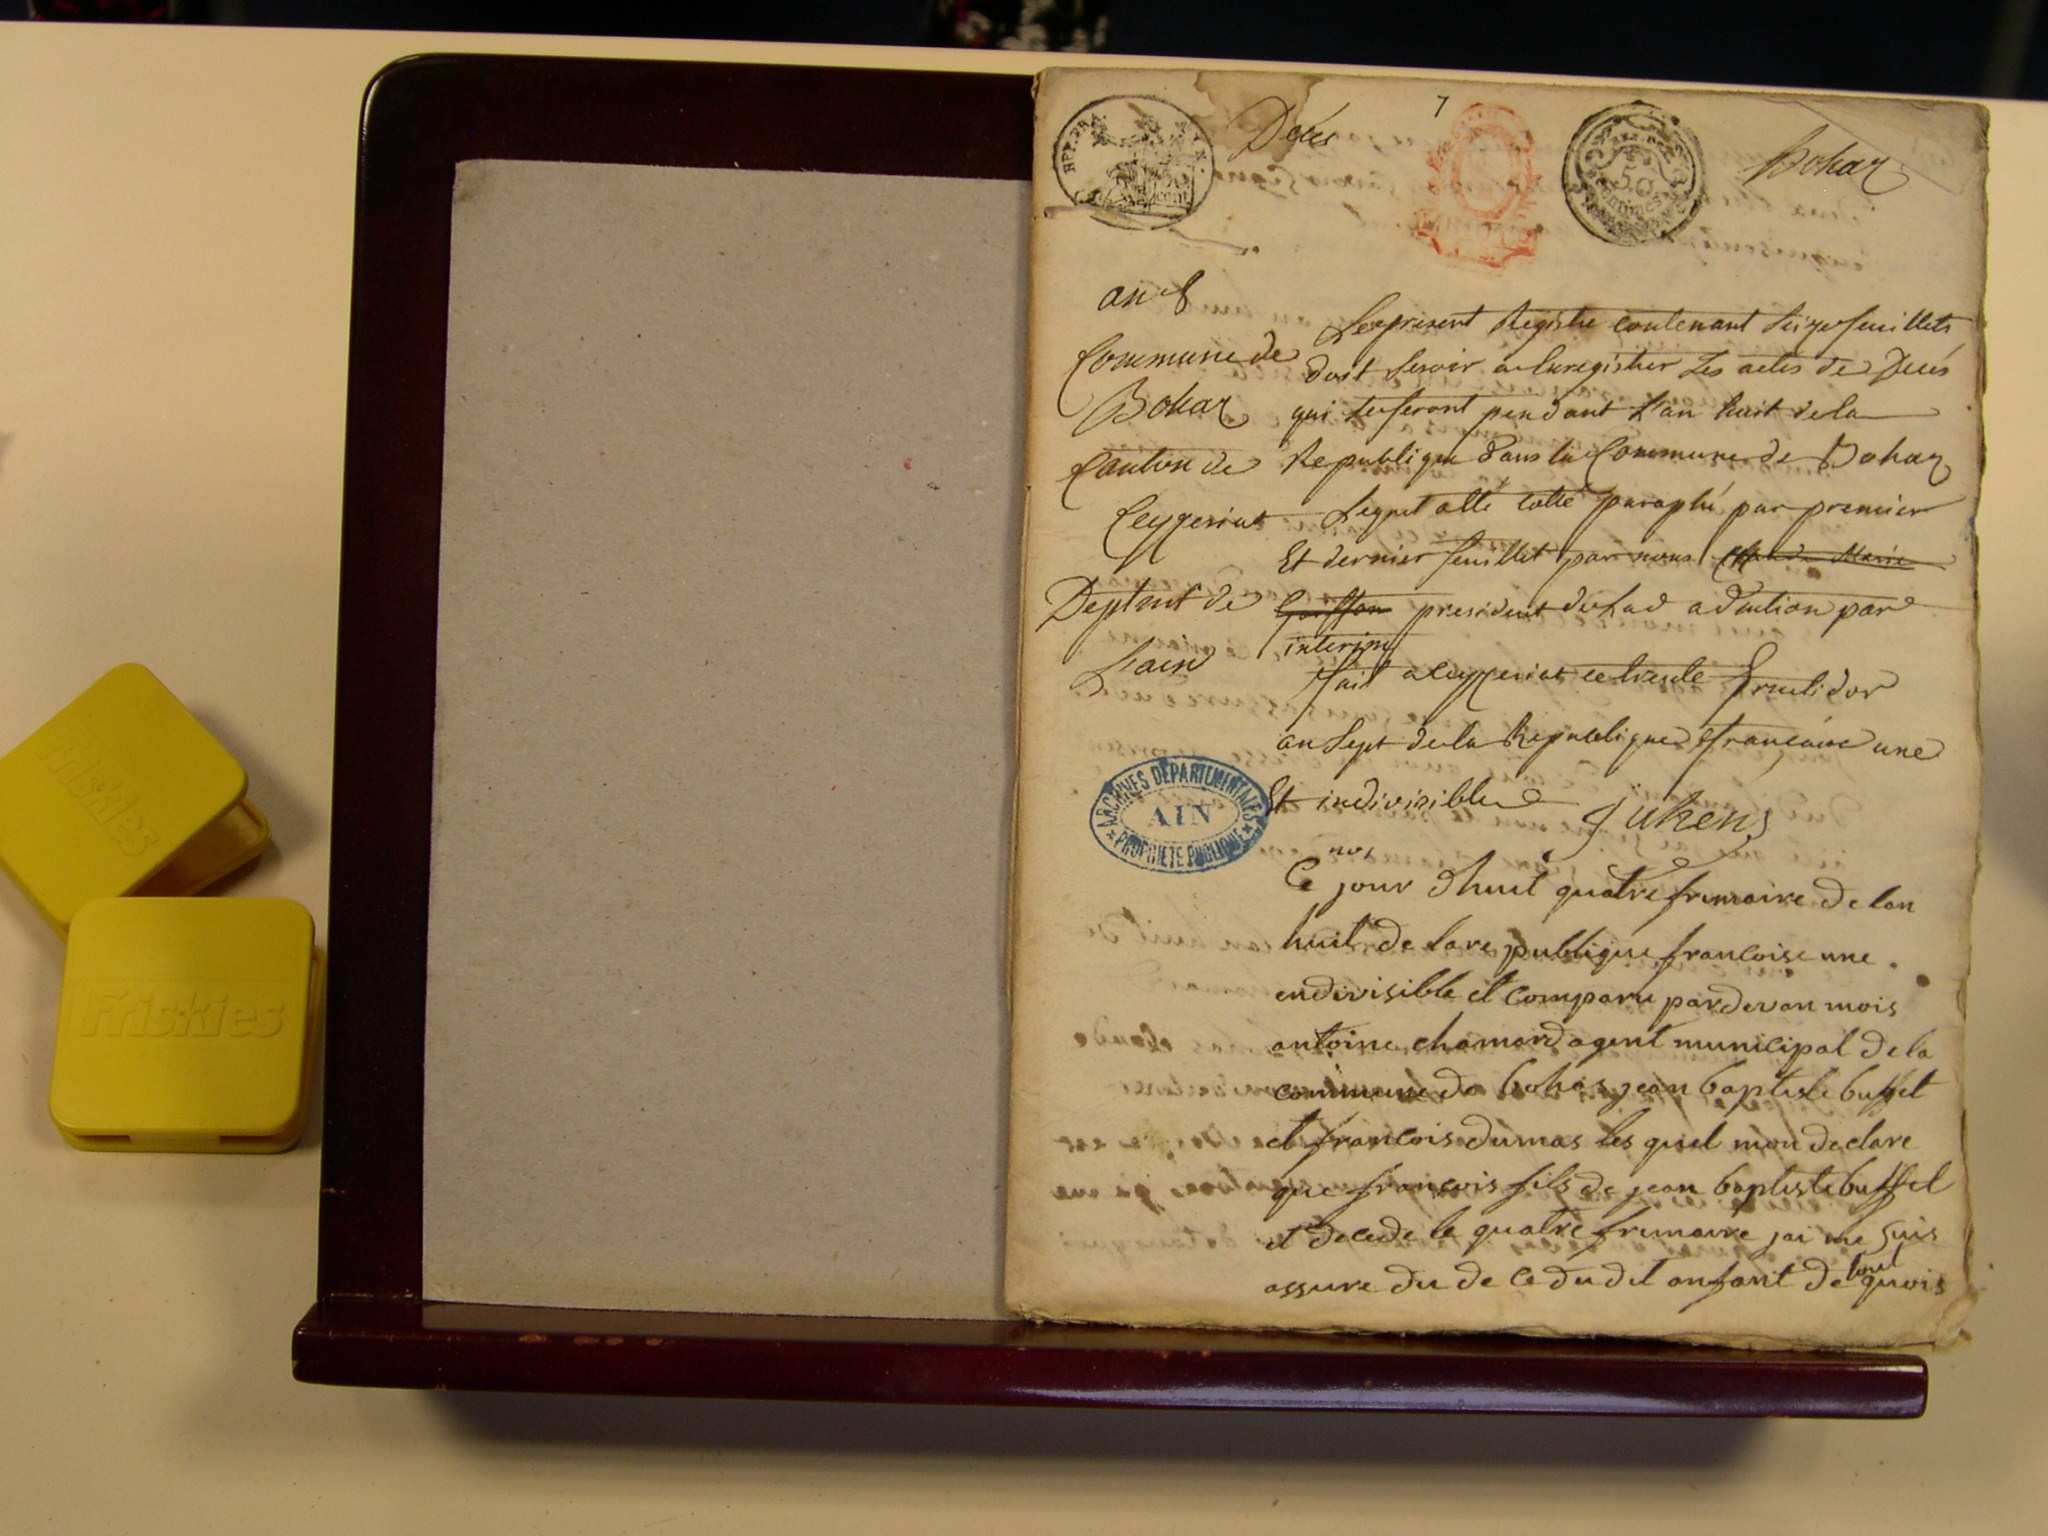 Décès
7
Bohaz
REP. FRA.
50
an 8
Commune de
Bohaz
Canton de
Ceyzeriat
Deptmt de
Lain
Le present Registre contenant seize feuillets
doit servir a Enregistrer Les actes de Decés
qui se feront pendant L'an huit de la
Republique dans la Commune de Bohaz
Lequel a été cotté paraphé par premier
Et dernier feuillet par nous Claude Marie
president de Lad adtion par
interim
fait a Ceyzeriat ce trente fructidor
an Sept de la Republique françaire une
Et indivisible
ARCHIVES DÉPARTEMENTALES
AIN
PROPRIÉTÉ PUBLIQUE
Ce jour dhuil quatre frimaire de lan
huit de lare publique francoise une
endivisible et comparu par devan mois
antoine chamard agent municipal de la
commune de bohas jean baptiste buffet
et francois dumas les quel mon declare
que francois fils de jean baptiste buffet
et decede le quatre frimaire jai me suis
assure du de ce du dit anfant de tout quois
Friskies
Friskies